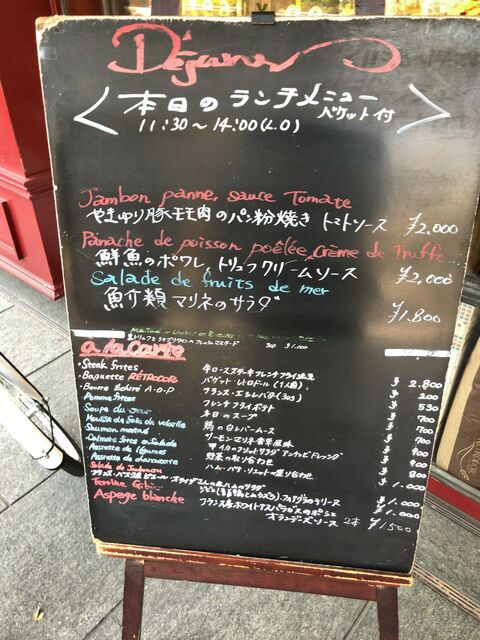 Déjeuner
本日のランチメニュー
バケット付
11:30~14:00(L.O)
Jambon panne, sauce Tomate
やまゆり豚モモ肉のパン粉焼き トマトソース ¥2,000
Panache de poisson poêlée, Crème de Truffe
鮮魚のポワレ、トリュフクリームソース ¥2,000
Salade de fruits de mer
魚介類マリネのサラダ ¥1,800
¥1,000
a la carte
・Steak frites 牛ロースステーキ フレンチフライ添え ¥2.800
・Baguette RÉTRODOR バゲット・レトロドール(1人前) ¥200
・Beurre Échiré A・O・P フランス・エシレバター(30g) ¥530
・Pomme frites フレンチフライポテト ¥700
・Soupe du jour 本日のスープ ¥700
・Mousse de foie de volaille 鶏の白レバームース ¥900
・Saumon mariné サーモンマリネ香草風味
・Assiette de légumes 野菜の取り合わせ ¥900
・Assiette de charcuterie ハム・パテ・リエットの盛り合わせ
Terrine Gibier ¥1.000
Asperge blanche フランス産ホワイトアスパラガスのポシェ
オランデーズソース 2本 ¥1500